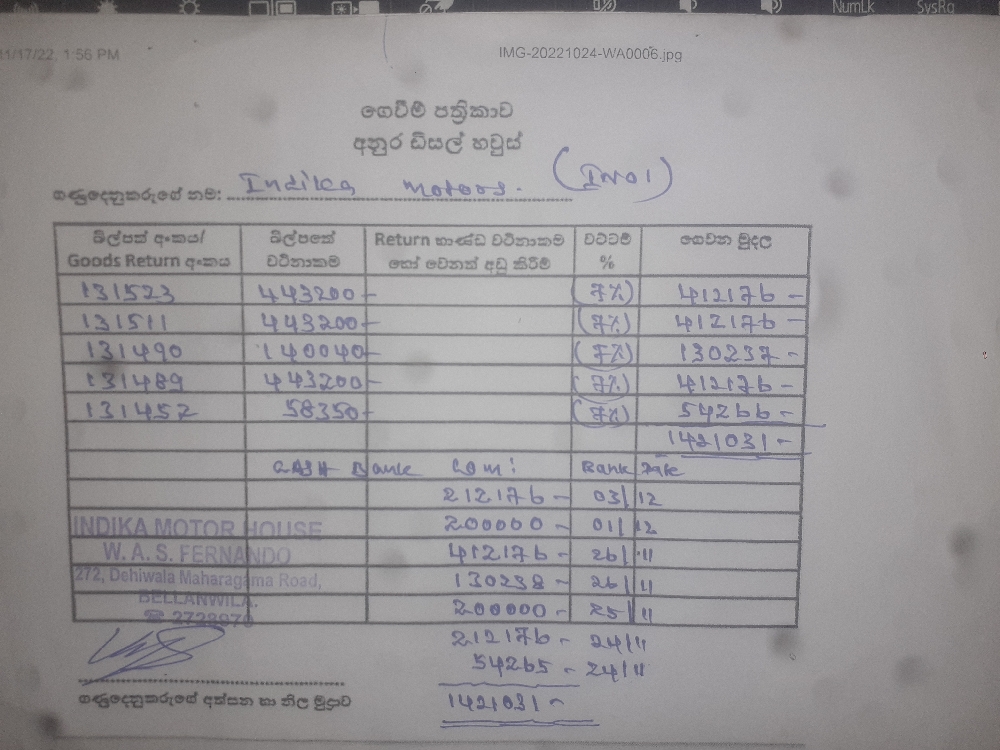 NumLk SysRq
11/17/22, 1:56 PM IMG-20221024-WA0006.jpg
ගෙවීම් පත්‍රිකාව
අනුර ඩීසල් හවුස්
ගණුදෙනුකරුගේ නම: Indika Motors. (IN01)
බිල්පත් අංකය/ බිල්පතේ Return භාණ්ඩ වටිනාකම වට්ටම් ගෙවන මුදල
Goods Return අංකය වටිනාකම හෝ වෙනත් අඩු කිරීම් %
131523 443200- (7%) 412176-
131511 443200- (7%) 412176-
131490 140040- (7%) 130237-
131489 443200- (7%) 412176-
131452 58350- (7%) 54266-
1421031-
CASH Bank Com: Bank Date
212176- 03/12
200000- 01/12
INDIKA MOTOR HOUSE
W. A. S. FERNANDO 412176- 26/11
272, Dehiwala Maharagama Road, 130238- 26/11
BELLANWILA. 200000- 25/11
☎ 2728970
212176- 24/11
54265- 24/11
ගණුදෙනුකරුගේ අත්සන හා නිල මුද්‍රාව 1421031-